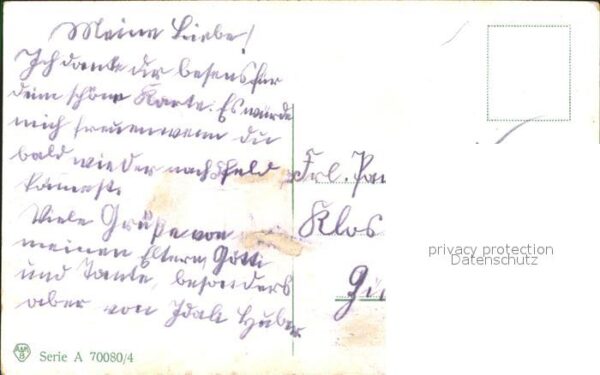 Meine Liebe!
Ich danke dir besens für
dein schöne Karte. Es würde
mich freuen wenn du
bald wieder nach Feld
kämest.
Viele Grüße von
meinen Eltern, Gotti
und Tante, besonders
aber von Idali Huber
Frl.
Klos
privacy protection
Datenschutz
Serie A 70080/4